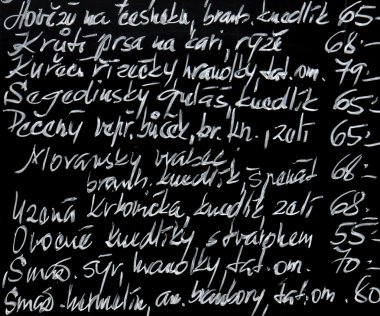 Hovězí na česneku, bramb. knedlík 65-
Krůtí prsa na kari, rýže 68:-
Kuřecí řízečky, hranolky, tat. om. 79:-
Segedínský guláš, knedlík 65:-
Pečený vepř. bůček, br. kn., zelí 65:-
Moravský vrabec,
bramb. knedlík, špenát 68:-
Uzená krkovička, knedlík, zelí 68:-
Ovocné knedlíky s tvarohem 55:-
Smaž. sýr, hranolky, tat. om. 70:-
Smaž. hermelín, am. brambory, tat. om. 80